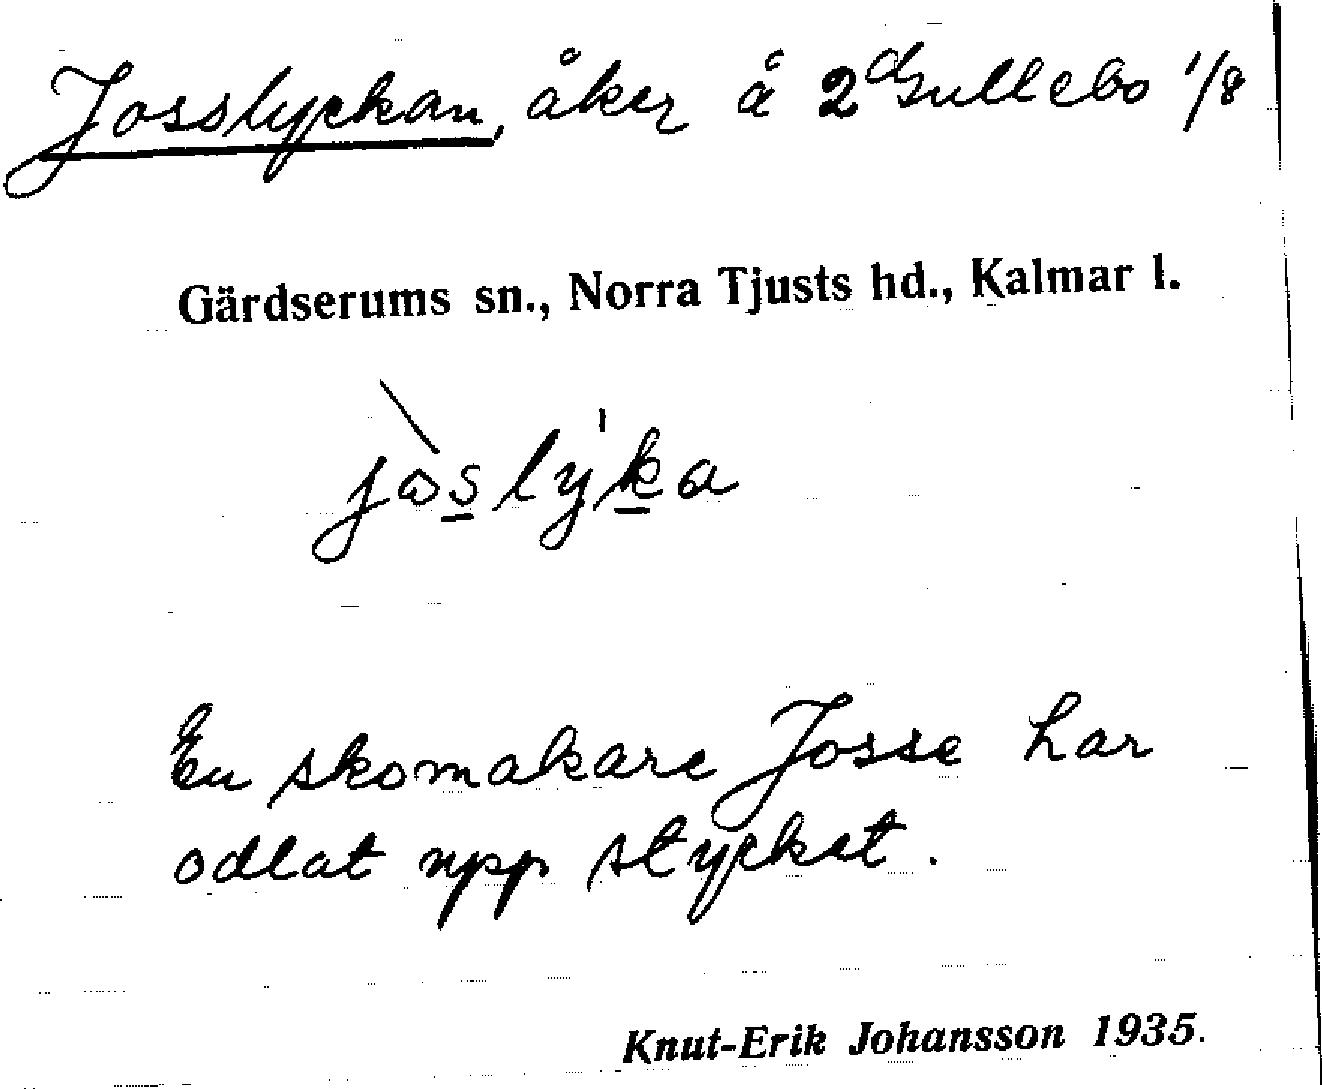 Josslyckan, åker å 2 Gullebo 1/8
Gärdserums sn., Norra Tjusts hd., Kalmar l.
jòslýka
En skomakare Josse har
odlat upp stycket.
Knut-Erik Johansson 1935.